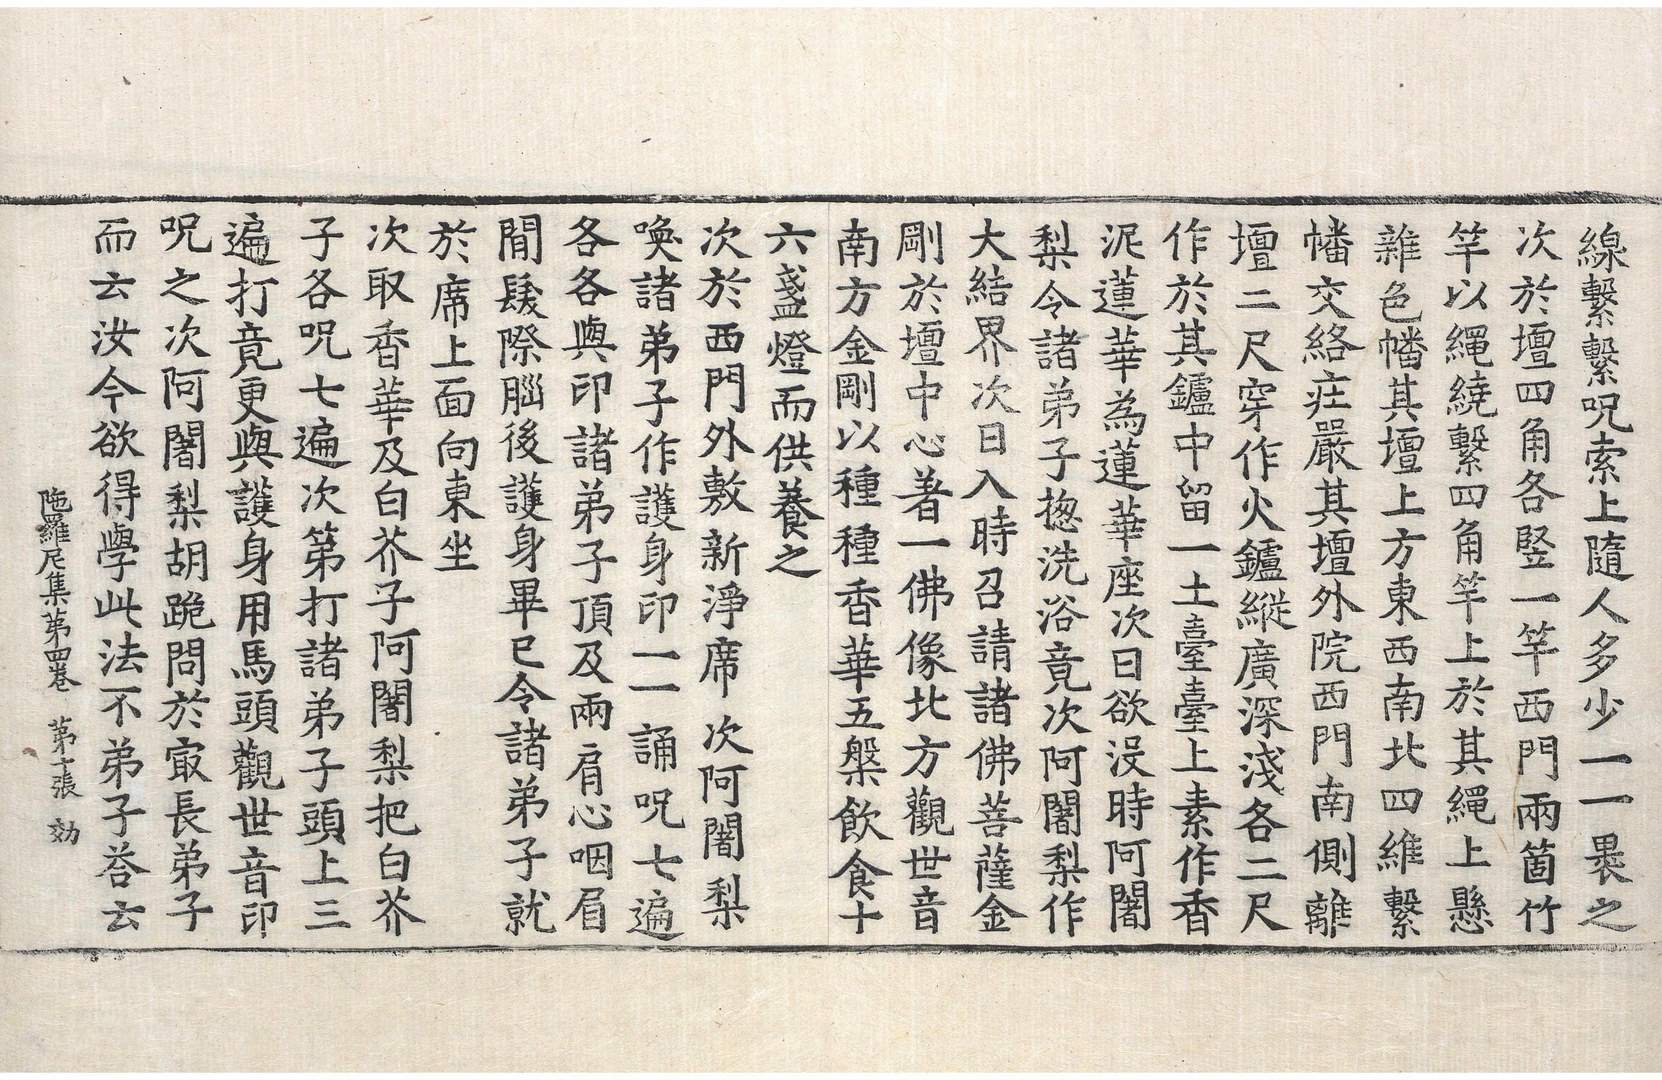 線繫繫呪索上隨人多少一一褁之
次於壇四角各竪一竿西門兩箇竹
竿以繩繞繫四角竿上於其繩上懸
雜色幡其壇上方東西南北四維繫
幡交絡庄嚴其壇外院西門南側離
壇二尺穿作火鑪縱廣深淺各二尺
作於其鑪中留一土臺臺上素作香
泥蓮華為蓮華座次日欲沒時阿闍
梨令諸弟子揔洗浴竟次阿闍梨作
大結界次日入時召請諸佛菩薩金
剛於壇中心著一佛像北方觀世音
南方金剛以種種香華五槃飲食十
六盞燈而供養之
次於西門外敷新淨席次阿闍梨
喚諸弟子作護身印一一誦呪七遍
各各與印諸弟子頂及兩肩心咽眉
間髮際腦後護身畢已令諸弟子就
於席上面向東坐
次取香華及白芥子阿闍梨把白芥
子各呪七遍次第打諸弟子頭上三
遍打竟更與護身用馬頭觀世音印
呪之次阿闍梨胡跪問於㝡長弟子
而云汝今欲得學此法不弟子荅云
陁羅尼集第四卷 第十張 効